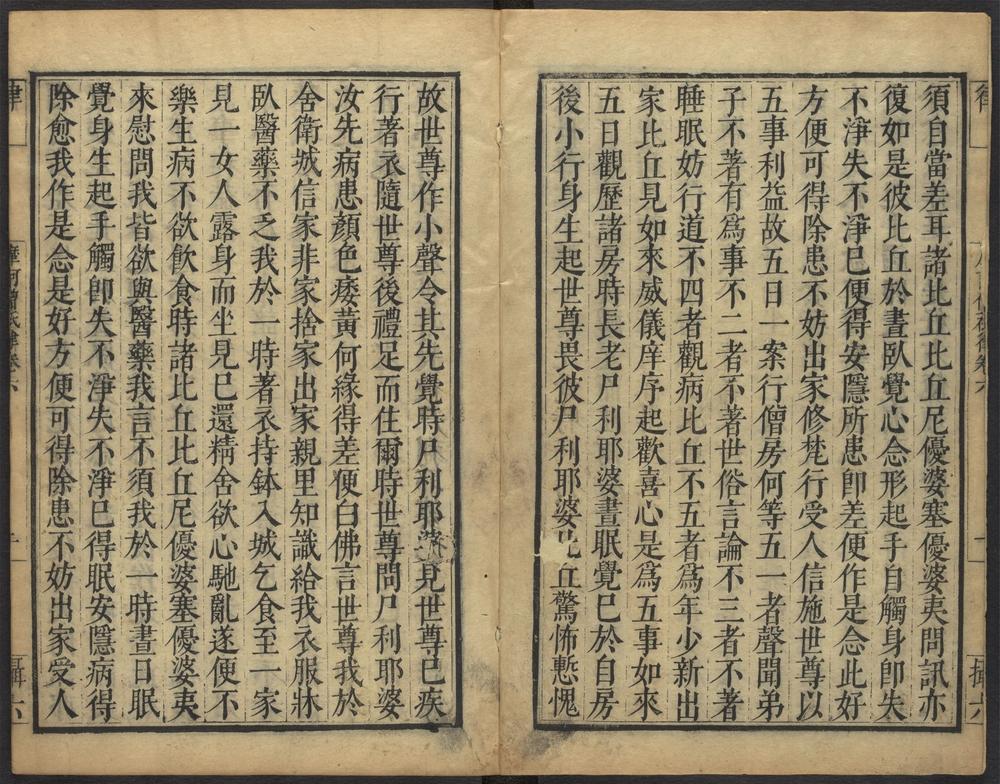 須自當差耳諸比丘比丘尼優婆塞優婆夷問訊亦
復如是彼比丘於晝臥覺心念形起手自觸身卽失
不淨失不淨已便得安隱所患卽差便作是念此好
方便可得除患不妨出家修梵行受人信施世尊以
五事利益故五日一案行僧房何等五一者聲聞弟
子不著有爲事不二者不著世俗言論不三者不著
睡眠妨行道不四者觀病比丘不五者爲年少新出
家比丘見如來威儀庠序起歡喜心是爲五事如來
五日觀歷諸房時長老尸利耶婆晝眠覺已於自房
後小行身生起世尊畏彼尸利耶婆比丘驚怖慙愧
故世尊作小聲令其先覺時尸利耶婆見世尊已疾
行著衣隨世尊後禮足而住爾時世尊問尸利耶婆
汝先病患顏色痿黃何緣得差便白佛言世尊我於
舍衛城信家非家捨家出家親里知識給我衣服牀
臥醫藥不乏我於一時著衣持鉢入城乞食至一家
見一女人露身而坐見已還精舍欲心馳亂遂便不
樂生病不欲飲食時諸比丘比丘尼優婆塞優婆夷
來慰問我皆欲與醫藥我言不須我於一時晝日眠
覺身生起手觸卽失不淨失不淨已得眠安隱病得
除愈我作是念是好方便可得除患不妨出家受人
律
摩訶僧祇律卷六